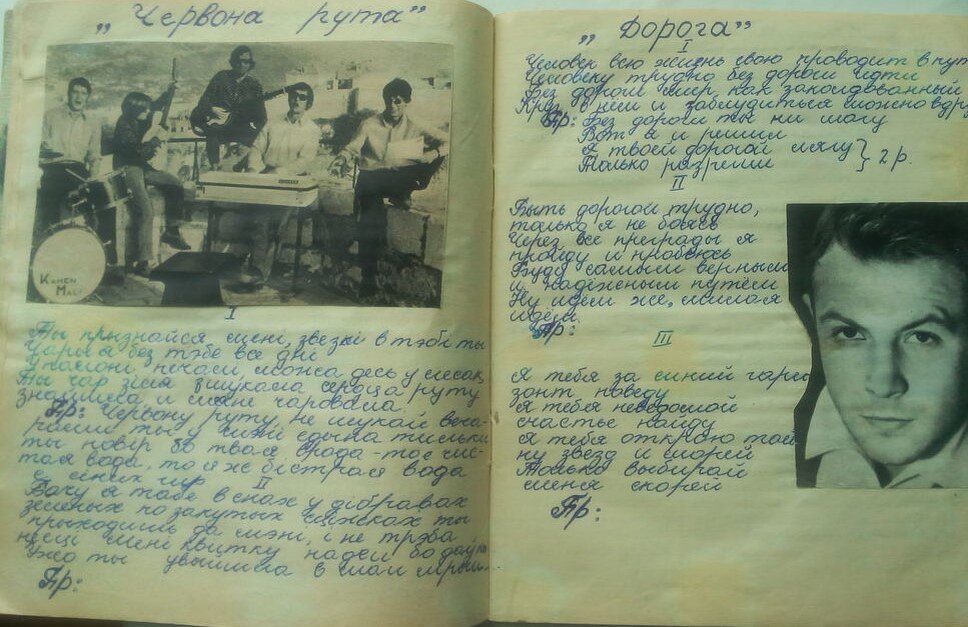 „Червона рута”
KAMEN
MAK
I
Ты прызнайся мені, звезкі в тэбі ты
Чары я без тэбе все дні
у полоні печалі можа десь у лесах
Ты чар зіля шукала серца руту
знайшла и мэне чаровала
Пр: Червону руту, не шукай веча-
рами ты у мэні едына тилькі
ты повір бо твоя врода-то є чис-
тая вода, то я же бістрая вода
с синих гир
II
Бачу я табе в снах у дібравах
зеленых по закутых стэжках ты
прыходишь да мэні, і не трэба
несці мені квитку надеи бо даўно
ужо ты увышла в мои мрыи
Пр:
„Дорога”
I
Человек всю жизнь свою проводит в пут
Человеку трудно без дороги идти
Без дороги мир, как заколдованный
Круг, в нём и заблудиться можно вдру
Пр: Без дороги ты ни шагу
Вот я и решил
Я твоей дорогой лягу } 2 р.
Только разреши
II
Быть дорогой трудно,
только я не боюсь
Через все преграды я
пройду и пробьюсь
Буду самым верным
и надёжным путём
Ну идём же, милая
идём.
Пр:
III
Я тебя за синий гори
зонт поведу
я тебя неведомой
счастье найду
я тебе открою тай
ну звезд и морей
Только выбирай
меня скорей
Пр: